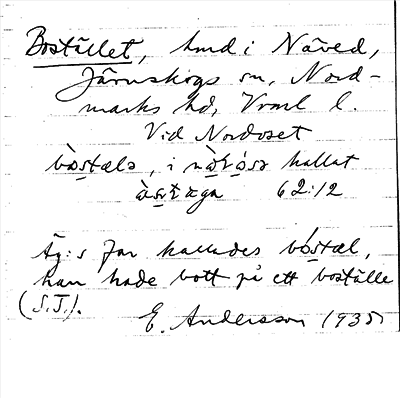 Bostället, hmd i Näved,
Järnskogs sn, Nord-
marks hd, Vrml l.
Vid Nordoset
bòstælə, i nàrósə kallat
62:12
Äg:s far kallades bóstæl,
han hade bott på ett boställe
(S.J.).
E. Andersson 1935